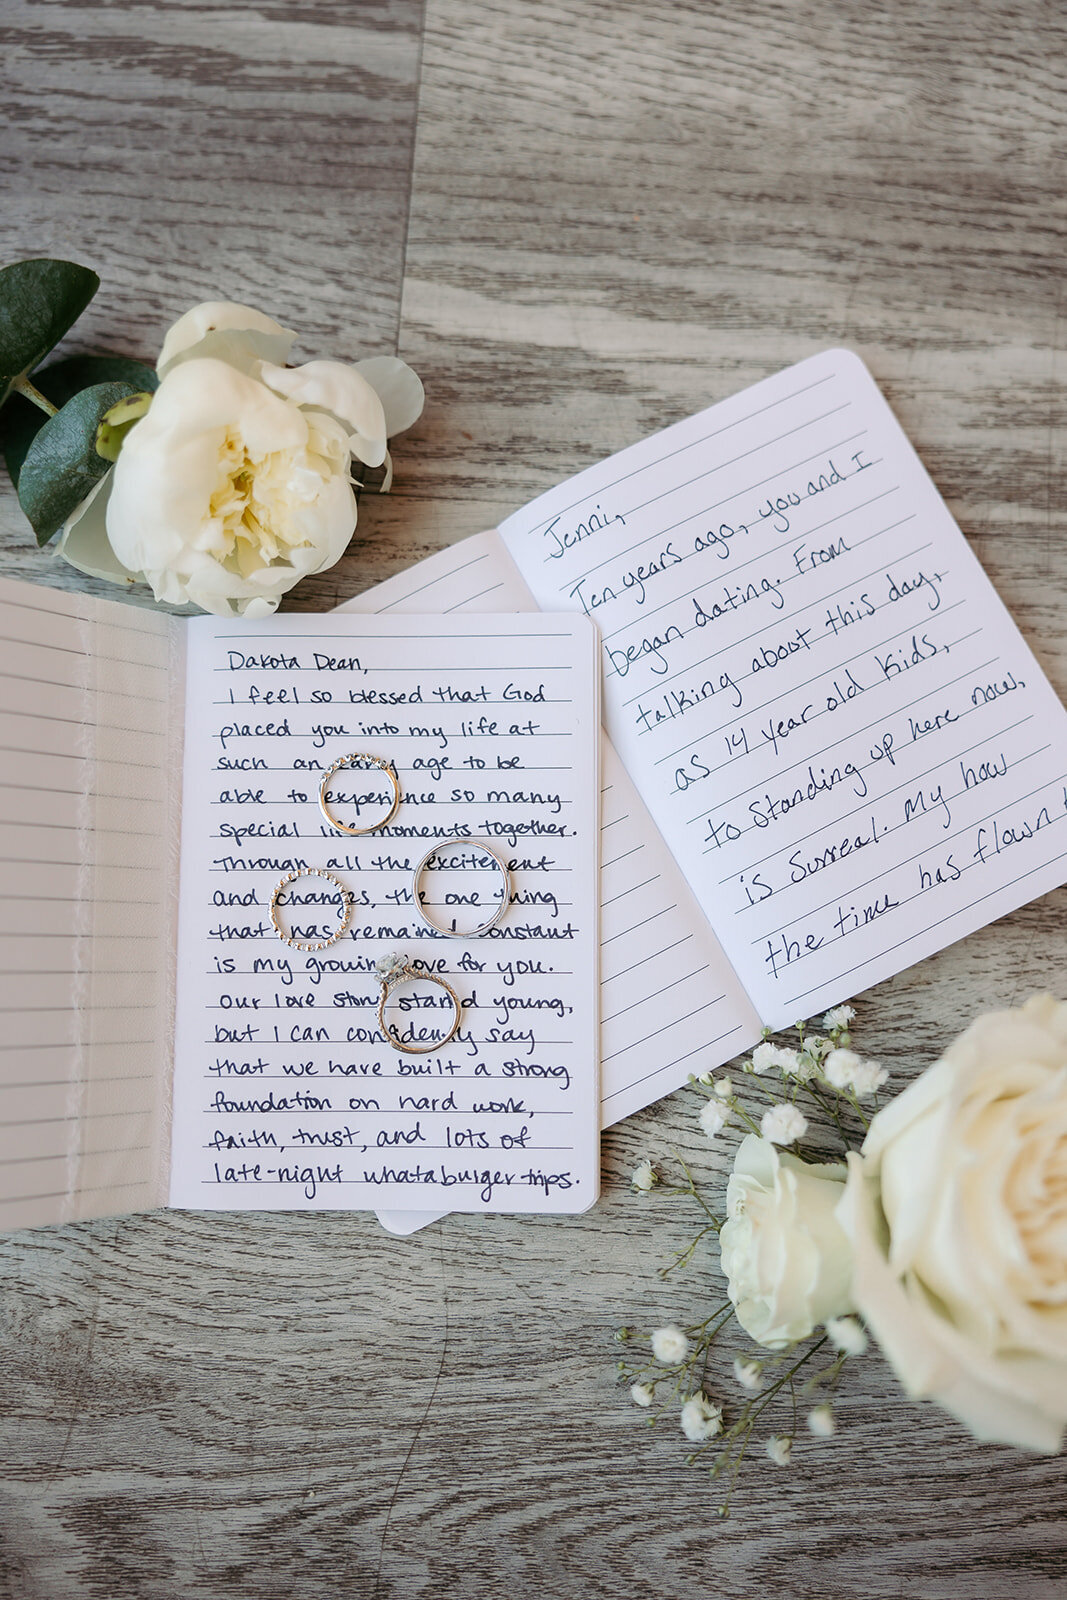 Dakota Dean,
I feel so blessed that God
placed you into my life at
such an early age to be
able to experience so many
special life moments together.
Through all the excitement
and changes, the one thing
that has remained constant
is my growing love for you.
Our love story started young,
but I can confidently say
that we have built a strong
foundation on hard work,
faith, trust, and lots of
late-night whataburger trips.
Jenni,
Ten years ago, you and I
began dating. From
talking about this day,
as 14 year old kids,
to standing up here now,
is surreal. My how
the time has flown